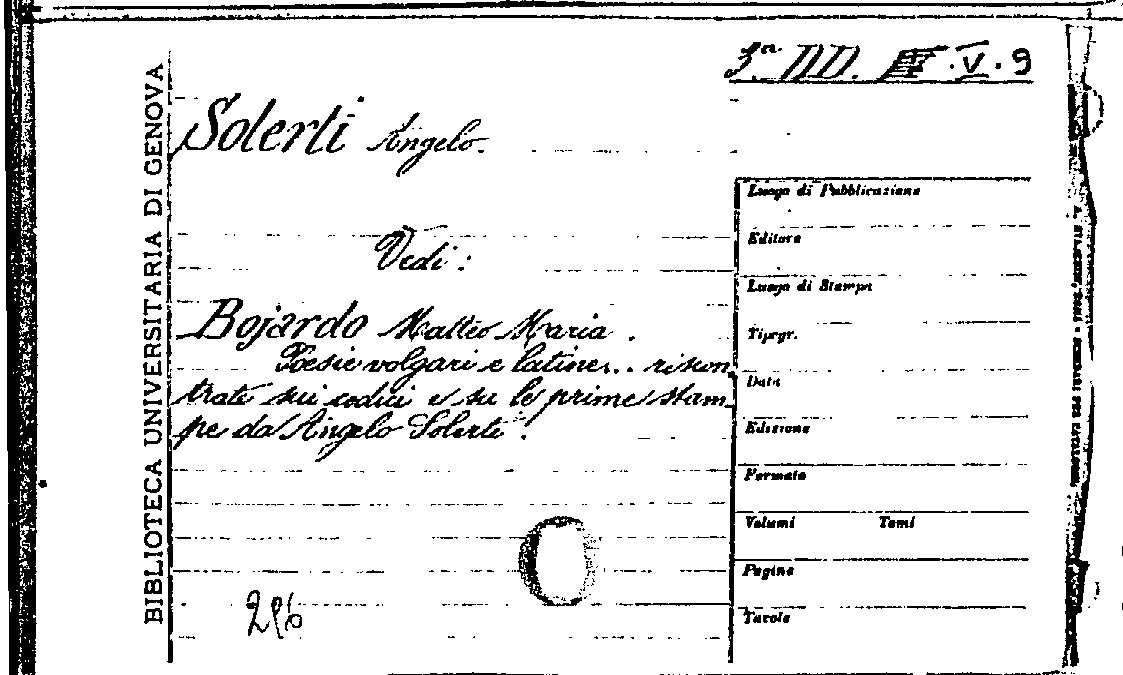 3.a DD. III.V.9
BIBLIOTECA UNIVERSITARIA DI GENOVA
Solerti Angelo.
Vedi:
Bojardo Matteo Maria.
Poesie volgari e latine... riscon
trate sui codici e su le prime stam
pe da Angelo Solerti.
Luogo di Pubblicazione
Editore
Luogo di Stampa
Tipogr.
Data
Edizione
Formato
Volumi Tomi
Pagine
Tavole
296